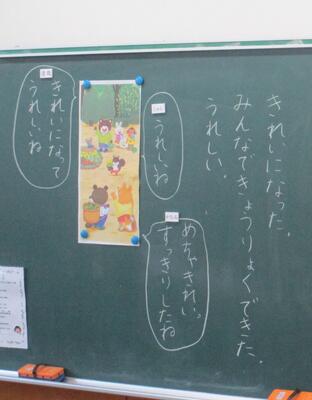 きれいになった。
みんなできょうりょくできた。
うれしい。
うれしいね
めちゃきれい。
すっきりしたね
きれいになって
うれしいね